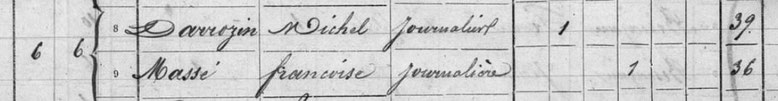 8 Darrozin Michel Journalier 1 39.
6 6
9 Massé francoise Journalière 1 36